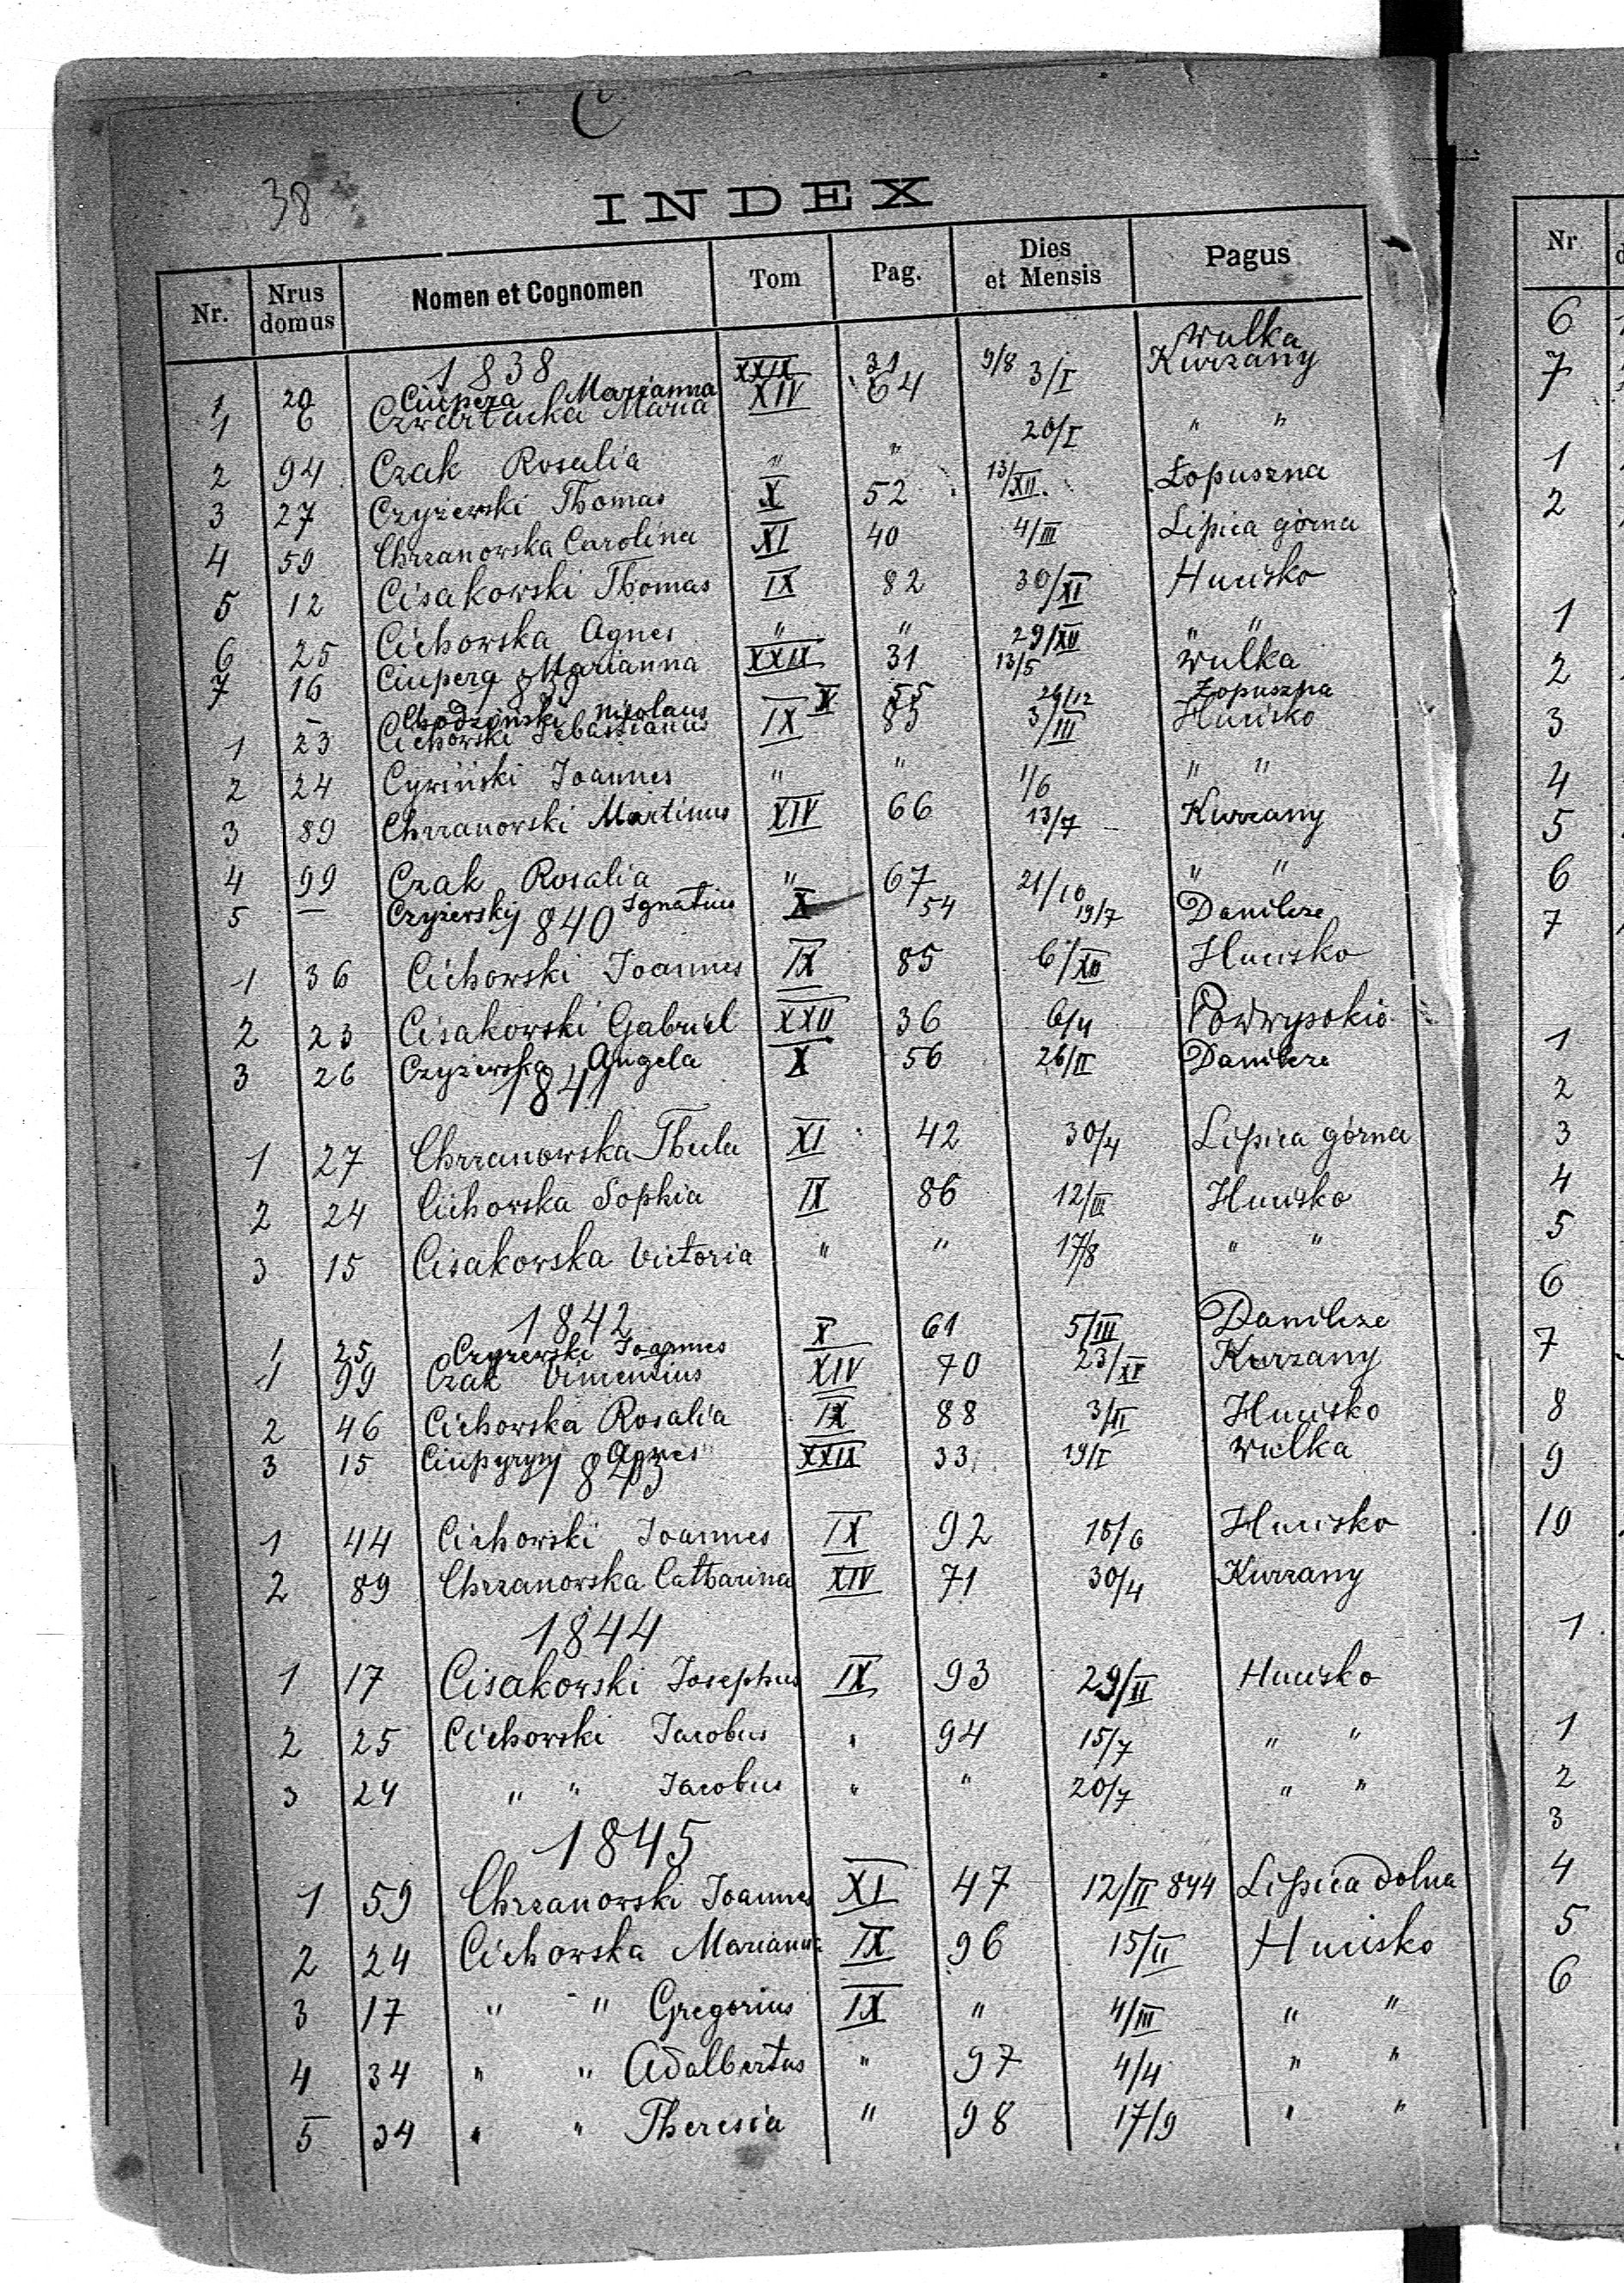 C
38
INDEX
Nr. Nrus domus Nomen et Cognomen Tom Pag. Dies et Mensis Pagus
1838
1 20 Ciupera Marianna XXIX 31 9/8 Wulka
1 6 Czwartacka Maria XIV 64 3/I Kurzany
2 94 Czak Rosalia " " 20/I " "
3 27 Czyżewski Thomas X 52 13/XII. Łopuszna
4 59 Chrzanowska Carolina XI 40 4/III Lipica górna
5 12 Cisakowski Thomas IX 82 30/XI Hucisko
6 25 Cichowska Agnes " " 29/XII " "
7 16 Ciupera Marianna XXIX 31 13/5 Wulka
1839
– Chodziński Nicolaus X 55 26/12 Łopuszna
1 23 Cichowski Sebastianus IX 83 3/III Hucisko
2 24 Cywiński Joannes " " 1/6 " "
3 89 Chrzanowski Martinus XIV 66 13/7 Kurzany
4 99 Czak Rosalia " 67 21/10 " "
5 — Czyżewski Ignatius X 54 19/7 Danilcze
1840
1 36 Cichowski Joannes IX 85 6/XII Hucisko
2 23 Cisakowski Gabriel XXII 36 6/4 Podwysokie
3 26 Czyżewska Angela X 56 26/II Danilcze
1841
1 27 Chrzanowska Thecla XI 42 30/4 Lipica górna
2 24 Cichowska Sophia IX 86 12/III Hucisko
3 15 Cisakowska Victoria " " 17/8 " "
1842
1 25 Czyżewski Joannes X 61 5/III Danilcze
1 99 Czak Vincentius XIV 70 23/XI Kurzany
2 46 Cichowska Rosalia IX 88 3/II Hucisko
3 15 Ciupyryj Agnes XXIX 33 19/I Wulka
1843
1 44 Cichowski Joannes IX 92 15/6 Hucisko
2 89 Chrzanowska Catharina XIV 71 30/4 Kurzany
1844
1 17 Cisakowski Josephus IX 93 29/II Hucisko
2 25 Cichowski Jacobus " 94 15/7 " "
3 24 " " Jacobus " " 20/7 " "
1845
1 59 Chrzanowski Joannes XI 47 12/II 844 Lipica dolna
2 24 Cichowska Marianna IX 96 15/II Hucisko
3 17 " " Gregorius IX " 4/III " "
4 34 " " Adalbertus " 97 4/4 " "
5 24 " " Theresia " 98 17/9 " "
Nr
6
7
1
2
1
2
3
4
5
6
7
1
2
3
4
5
6
7
8
9
10
1
1
2
3
4
5
6